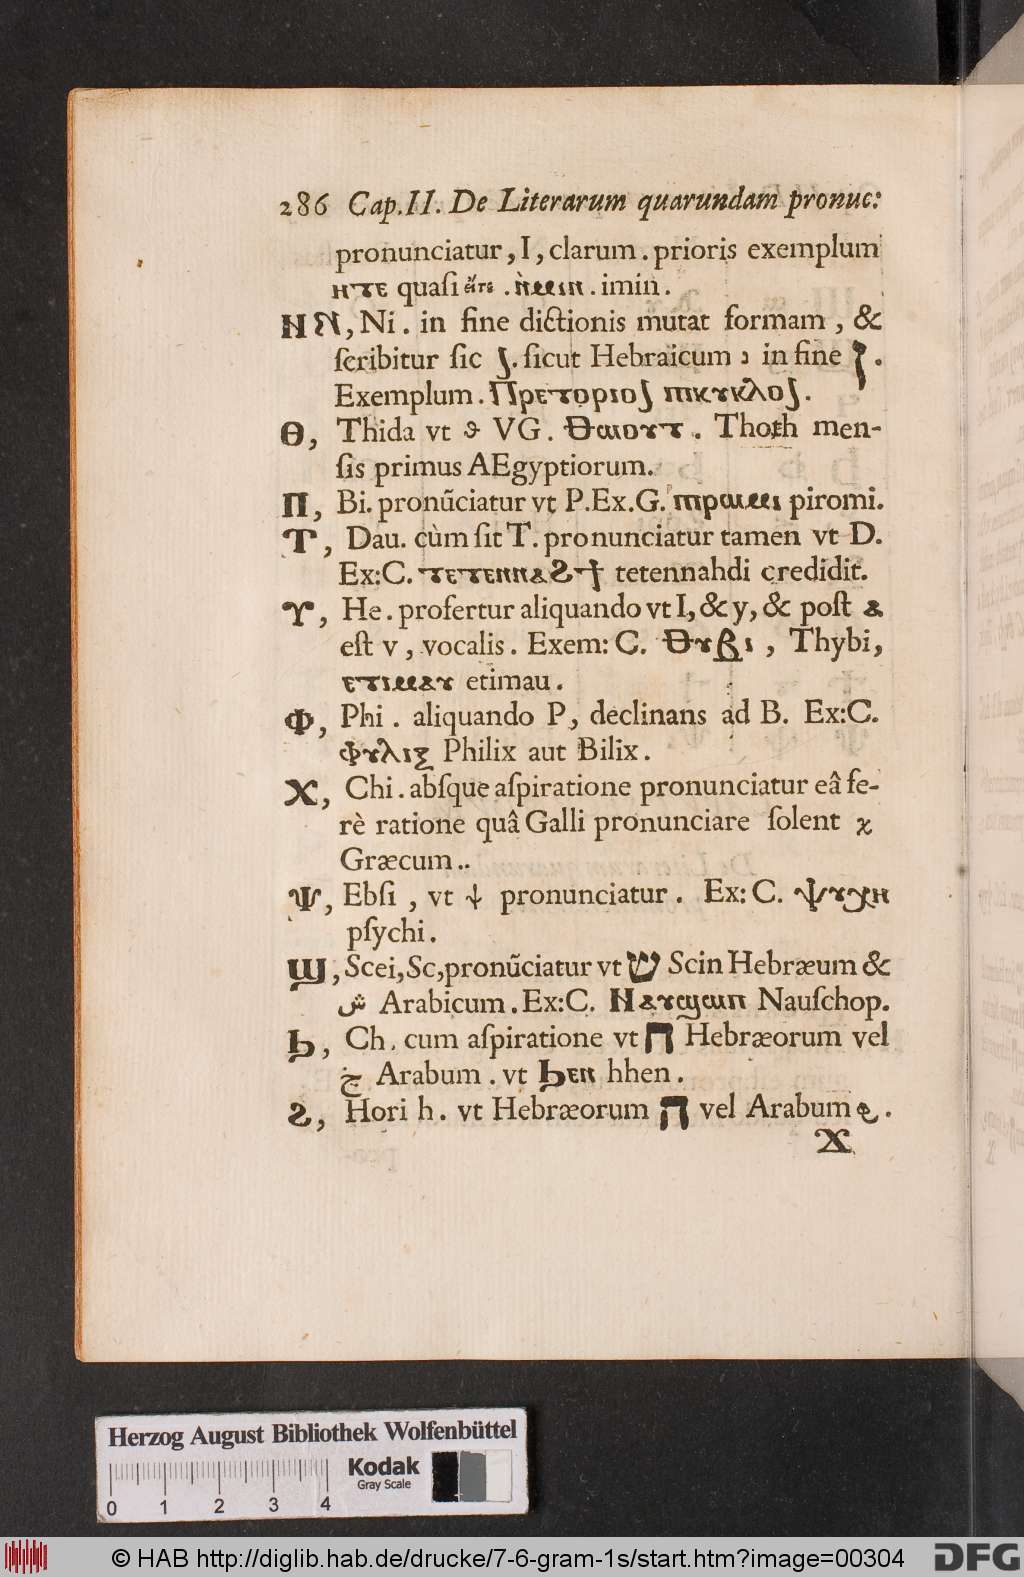 286 Cap.II. De Literarum quarundam pronuc:
pronunciatur, I, clarum. prioris exemplum
ⲏⲧⲉ quaſi . ⲛ̀ⲙⲓⲛ. imin.
Ⲛ ⲛ, Ni. in fine dictionis mutat formam, &
ſcribitur ſic ʃ. ſicut Hebraicum נ in fine ן.
Exemplum. Ⲡⲣⲉⲧⲟⲣⲓⲟʃ ⲡⲕⲩⲕⲗⲟʃ.
Ⲑ, Thida vt ϑ VG. Ⲑⲱⲟⲩⲧ. Thoth men-
ſis primus AEgyptiorum.
Ⲡ, Bi. pronũciatur vt P.Ex.G. ⲡⲣⲱⲙⲓ piromi.
Ⲧ, Dau. cùm ſit T. pronunciatur tamen vt D.
Ex:C. ⲧⲉⲧⲉⲛⲛⲁϩϯ tetennahdi credidit.
Ⲩ, He. profertur aliquando vt I, & y, & poſt ⲁ
eſt v, vocalis. Exem: C. Ⲑⲩⲃⲓ, Thybi,
ⲉⲧⲓⲙⲁⲩ etimau.
Ⲫ, Phi. aliquando P, declinans ad B. Ex:C.
ⲫⲩⲗⲓⲝ Philix aut Bilix.
Ⲭ, Chi. abſque aſpiratione pronunciatur eâ fe-
rè ratione quâ Galli pronunciare ſolent χ
Græcum..
Ⲯ, Ebſi, vt ψ pronunciatur. Ex: C. ⲯⲩⲭⲏ
pſychi.
Ϣ, Scei, Sc, pronũciatur vt שׁ Scin Hebræum &
ش Arabicum. Ex:C. Ⲛⲁⲩϣⲱⲡ Nauſchop.
Ϧ, Ch. cum aſpiratione vt ח Hebræorum vel
خ Arabum. vt Ϧⲉⲛ hhen.
Ϩ, Hori h. vt Hebræorum ה vel Arabum ه.
Ϫ
Herzog August Bibliothek Wolfenbüttel
Kodak
Gray Scale
0 1 2 3 4
© HAB http://diglib.hab.de/drucke/7-6-gram-1s/start.htm?image=00304
DFG